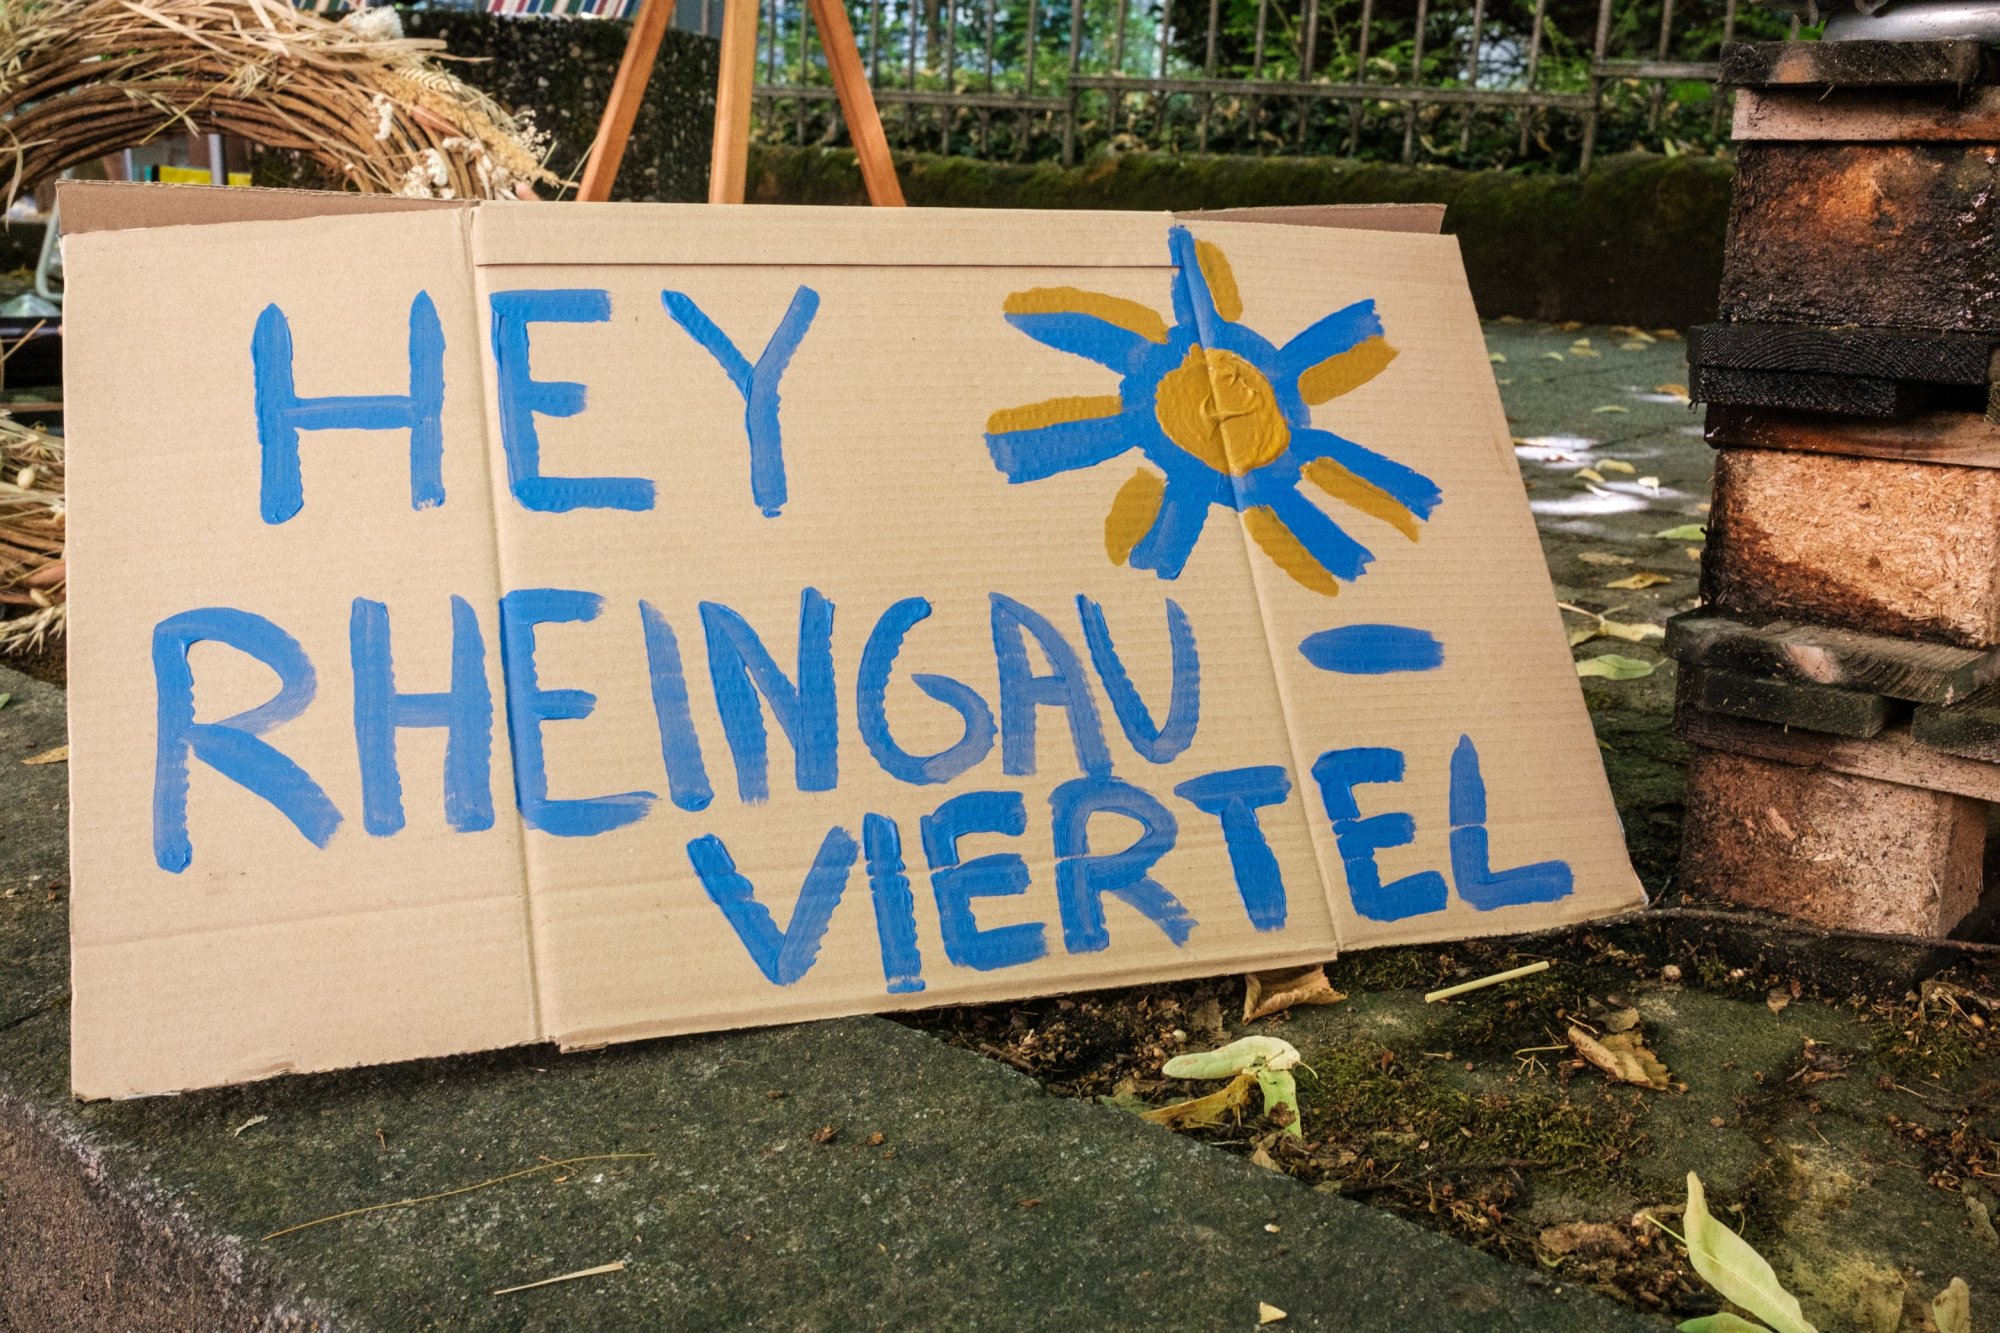 HEY
RHEINGAU -
VIERTEL